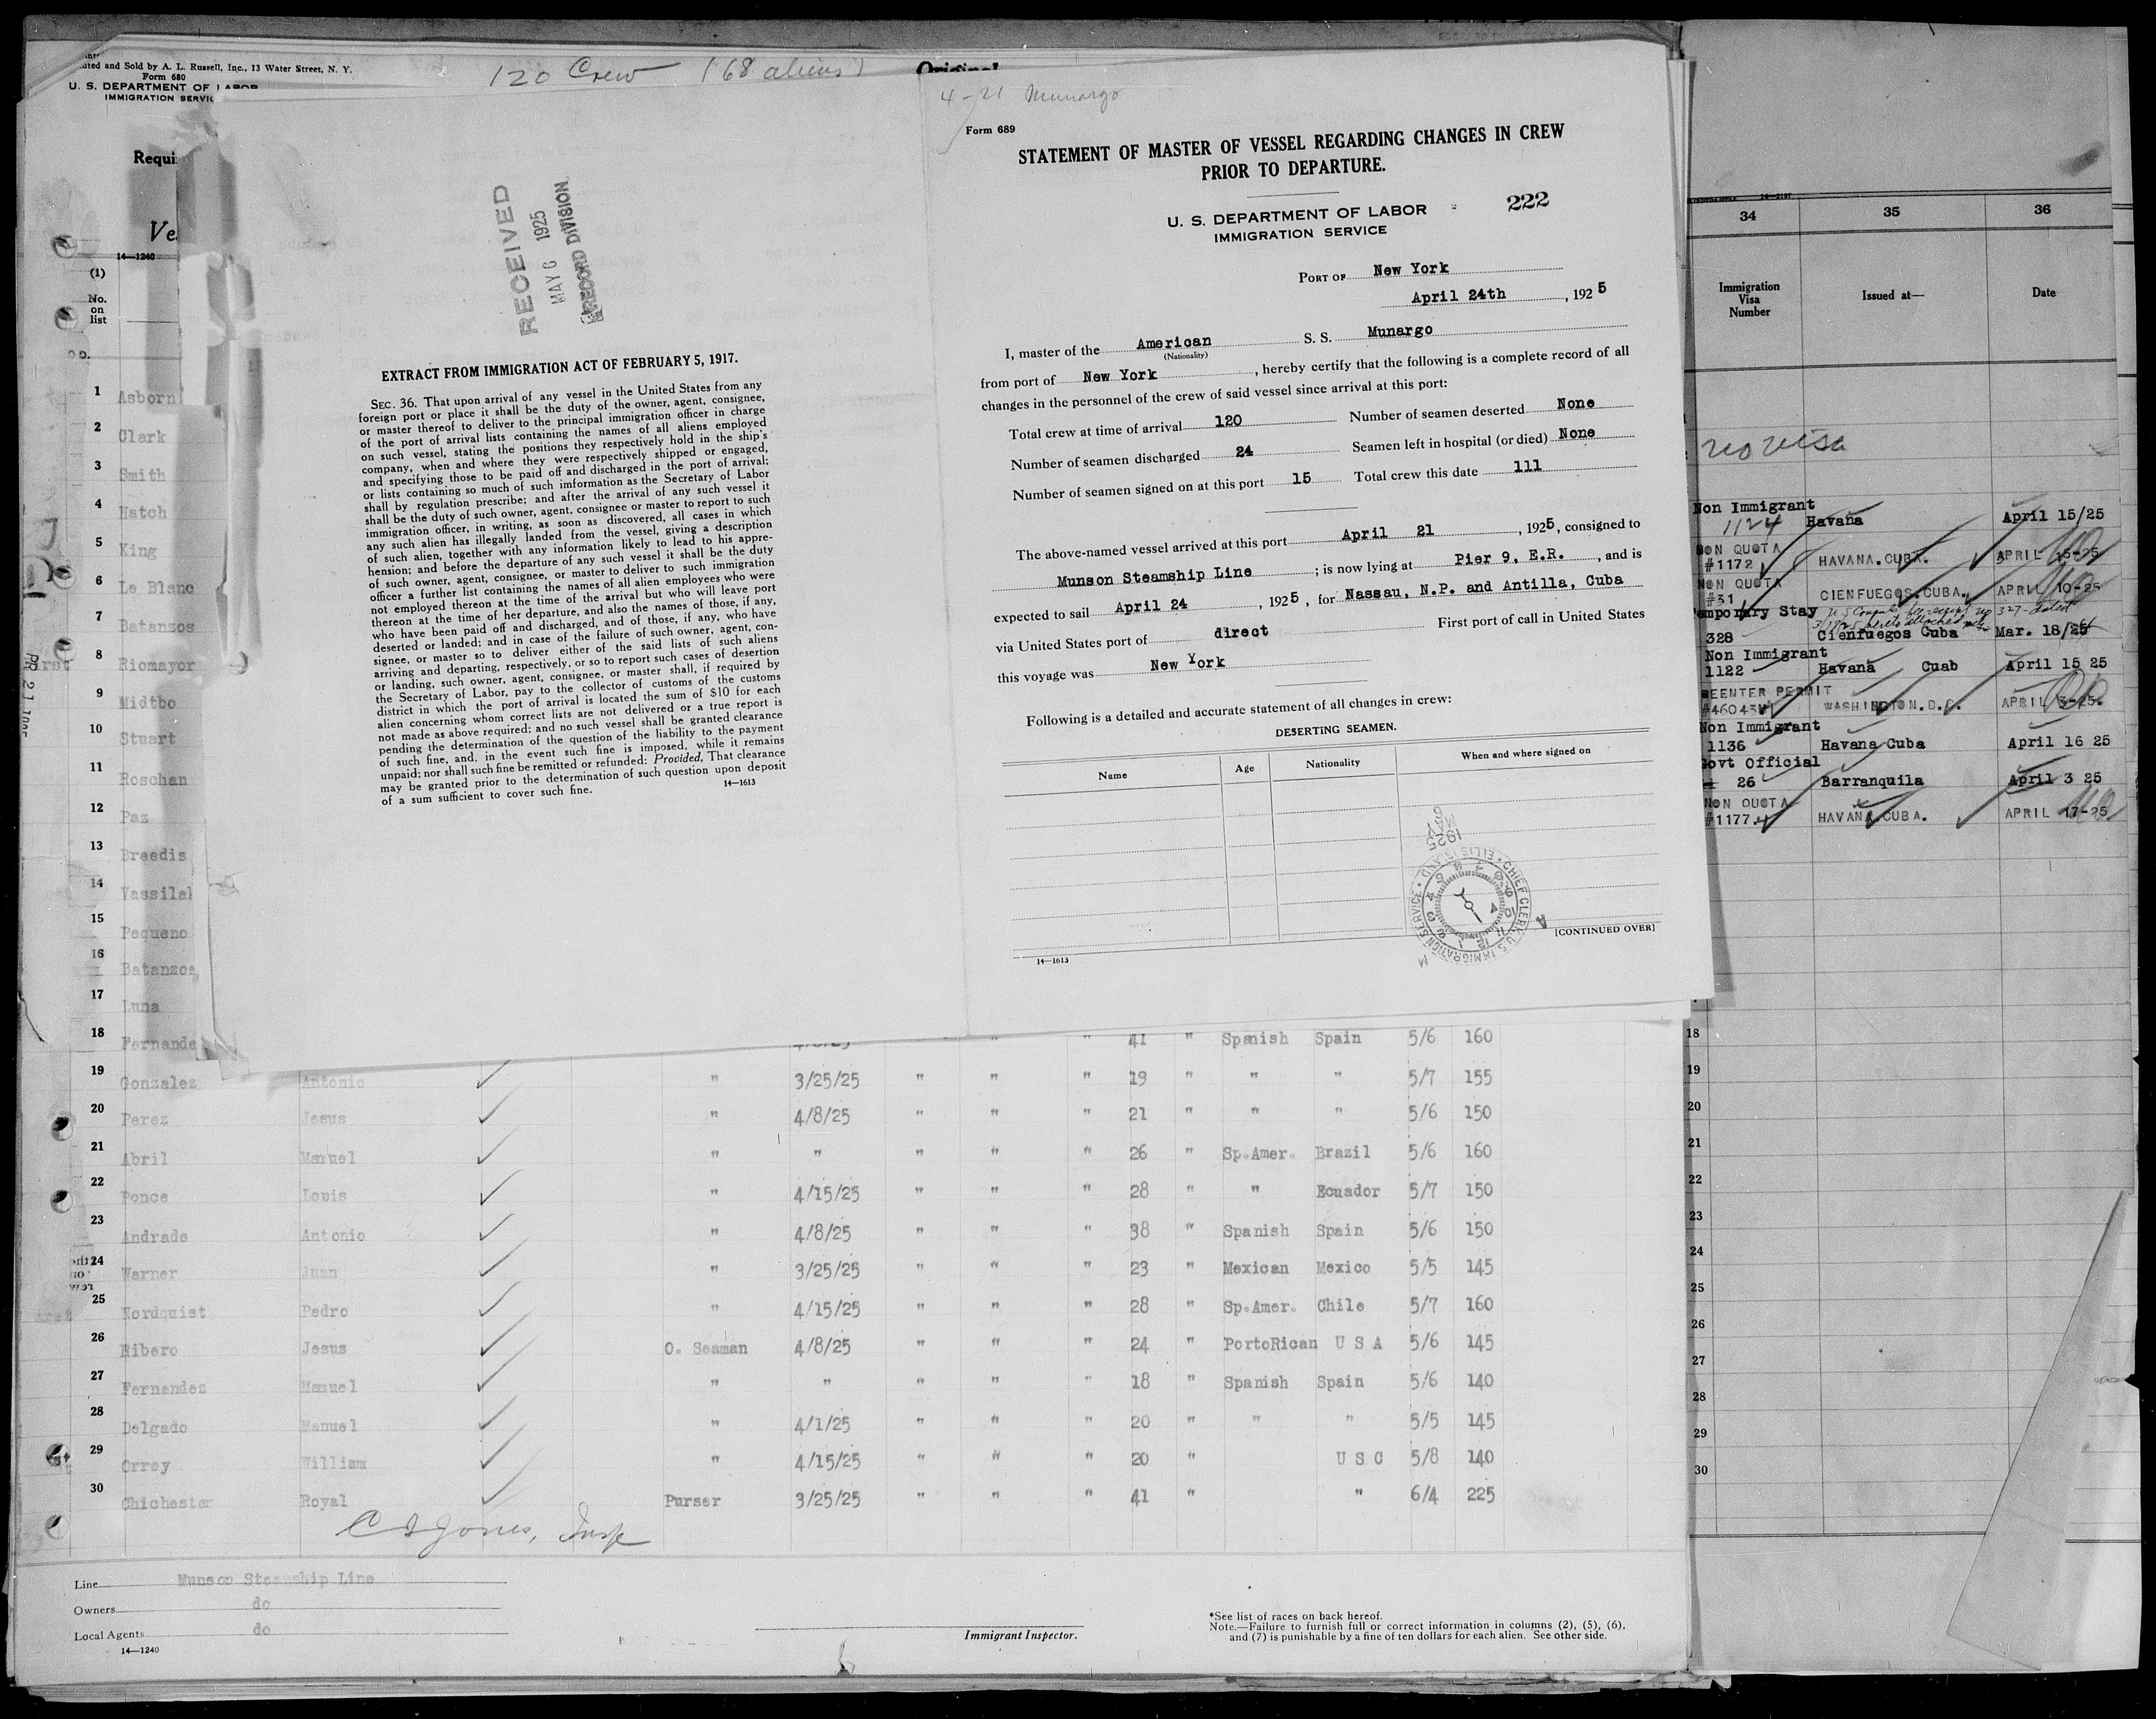 uted and Sold by A. L. Russell, Inc., 13 Water Street, N. Y.
Form 680
U. S. DEPARTMENT OF LABOR
IMMIGRATION SERVIC
120 Crew (68 aliens)
Original
Requi
Ve
14—1240
(1)
No.
on
list
1 Asborn
2 Clark
3 Smith
4 Hatch
5 King
6 Le Blanc
7 Batanzos
8 Riomayor
9 Midtbo
10 Stuart
11 Roschan
12 Paz
13 Breedis
14 Vassilal
15 Pequeno
16 Batanzos
17 Luna
18 Fernande
RECEIVED
MAY 6 1925
RECORD DIVISION
EXTRACT FROM IMMIGRATION ACT OF FEBRUARY 5, 1917.
SEC. 36. That upon arrival of any vessel in the United States from any
foreign port or place it shall be the duty of the owner, agent, consignee,
or master thereof to deliver to the principal immigration officer in charge
of the port of arrival lists containing the names of all aliens employed
on such vessel, stating the positions they respectively hold in the ship's
company, when and where they were respectively shipped or engaged,
and specifying those to be paid off and discharged in the port of arrival;
or lists containing so much of such imformation as the Secretary of Labor
shall by regulation prescribe; and after the arrival of any such vessel it
shall be the duty of such owner, agent, consignee or master to report to such
immigration officer, in writing, as soon as discovered, all cases in which
any such alien has illegally landed from the vessel, giving a description
of such alien, together with any information likely to lead to his appre-
hension; and before the departure of any such vessel it shall be the duty
of such owner, agent, consignee, or master to deliver to such immigration
officer a further list containing the names of all alien employees who were
not employed thereon at the time of the arrival but who will leave port
thereon at the time of her departure, and also the names of those, if any,
who have been paid off and discharged, and of those, if any, who have
deserted or landed; and in case of the failure of such owner, agent, con-
signee, or master so to deliver either of the said lists of such aliens
arriving and departing, respectively, or so to report such cases of desertion
or landing, such owner, agent, consignee, or master shall, if required by
the Secretary of Labor, pay to the collector of customs of the customs
district in which the port of arrival is located the sum of $10 for each
alien concerning whom correct lists are not delivered or a true report is
not made as above required; and no such vessel shall be granted clearance
pending the determination of the question of the liability to the payment
of such fine, and, in the event such fine is imposed, while it remains
unpaid; nor shall such fine be remitted or refunded: Provided, That clearance
may be granted prior to the determination of such question upon deposit
of a sum sufficient to cover such fine.
14—1613
4-21 Munargo
Form 689
STATEMENT OF MASTER OF VESSEL REGARDING CHANGES IN CREW
PRIOR TO DEPARTURE.
U. S. DEPARTMENT OF LABOR
IMMIGRATION SERVICE
222
PORT OF New York
April 24th, 1925
I, master of the American S. S. Munargo
(Nationality)
from port of New York, hereby certify that the following is a complete record of all
changes in the personnel of the crew of said vessel since arrival at this port:
Total crew at time of arrival 120 Number of seamen deserted None
Number of seamen discharged 24 Seamen left in hospital (or died) None
Number of seamen signed on at this port 15 Total crew this date 111
The above-named vessel arrived at this port April 21, 1925, consigned to
Munson Steamship Line; is now lying at Pier 9, E.R., and is
expected to sail April 24, 1925, for Nassau, N.P. and Antilla, Cuba
via United States port of direct First port of call in United States
this voyage was New York
Following is a detailed and accurate statement of all changes in crew:
DESERTING SEAMEN.
Name Age Nationality When and where signed on
MAY
1925
CHIEF CLERK, U.S. IMMIGRATION SERVICE • ELLIS ISLAND •
[CONTINUED OVER]
14—1613
41 " Spanish Spain 5/6 160
19 Gonzalez Antonio " 3/25/25 " " " 19 " " " 5/7 155
20 Perez Jesus " 4/8/25 " " " 21 " " " 5/6 150
21 Abril Manuel " " " " " 26 " Sp.Amer. Brazil 5/6 160
22 Ponce Louis " 4/15/25 " " " 28 " " Ecuador 5/7 150
23 Andrade Antonio " 4/8/25 " " " 38 " Spanish Spain 5/6 150
24 Warner Juan " 3/25/25 " " " 23 " Mexican Mexico 5/5 145
25 Nordquist Pedro " 4/15/25 " " " 28 " Sp.Amer. Chile 5/7 160
26 Ribero Jesus O. Seaman 4/8/25 " " " 24 " PortoRican U S A 5/6 145
27 Fernandez Manuel " " " " " 18 " Spanish Spain 5/6 140
28 Delgado Manuel " 4/1/25 " " " 20 " " " 5/5 145
29 Orrey William " 4/15/25 " " " 20 " U S C 5/8 140
30 Chichester Royal Purser 3/25/25 " " " 41 " " 6/4 225
Jones, Insp
Line Munson Steamship Line
Owners do
Local Agents do
14—1240
Immigrant Inspector.
*See list of races on back hereof.
Note.—Failure to furnish full or correct information in columns (2), (5), (6),
and (7) is punishable by a fine of ten dollars for each alien. See other side.
34 35 36
Immigration
Visa
Number
Issued at—
Date
no visa
Non Immigrant
1124 Havana April 15/25
NON QUOTA
#1172 HAVANA.CUBA. APRIL 15-25
NON QUOTA
#31 CIENFUEGOS.CUBA. APRIL 10-25
Temporary Stay
328 Cienfuegos Cuba Mar. 18/25
Non Immigrant
1122 Havana Cuab April 15 25
REENTER PERMIT
#46043 WASHINGTON.D.C. APRIL 3-25.
Non Immigrant
1136 Havana Cuba April 16 25
Govt Official
26 Barranquila April 3 25
NON QUOTA
#1177 HAVANA CUBA. APRIL 17-25
18
19
20
21
22
23
24
25
26
27
28
29
30